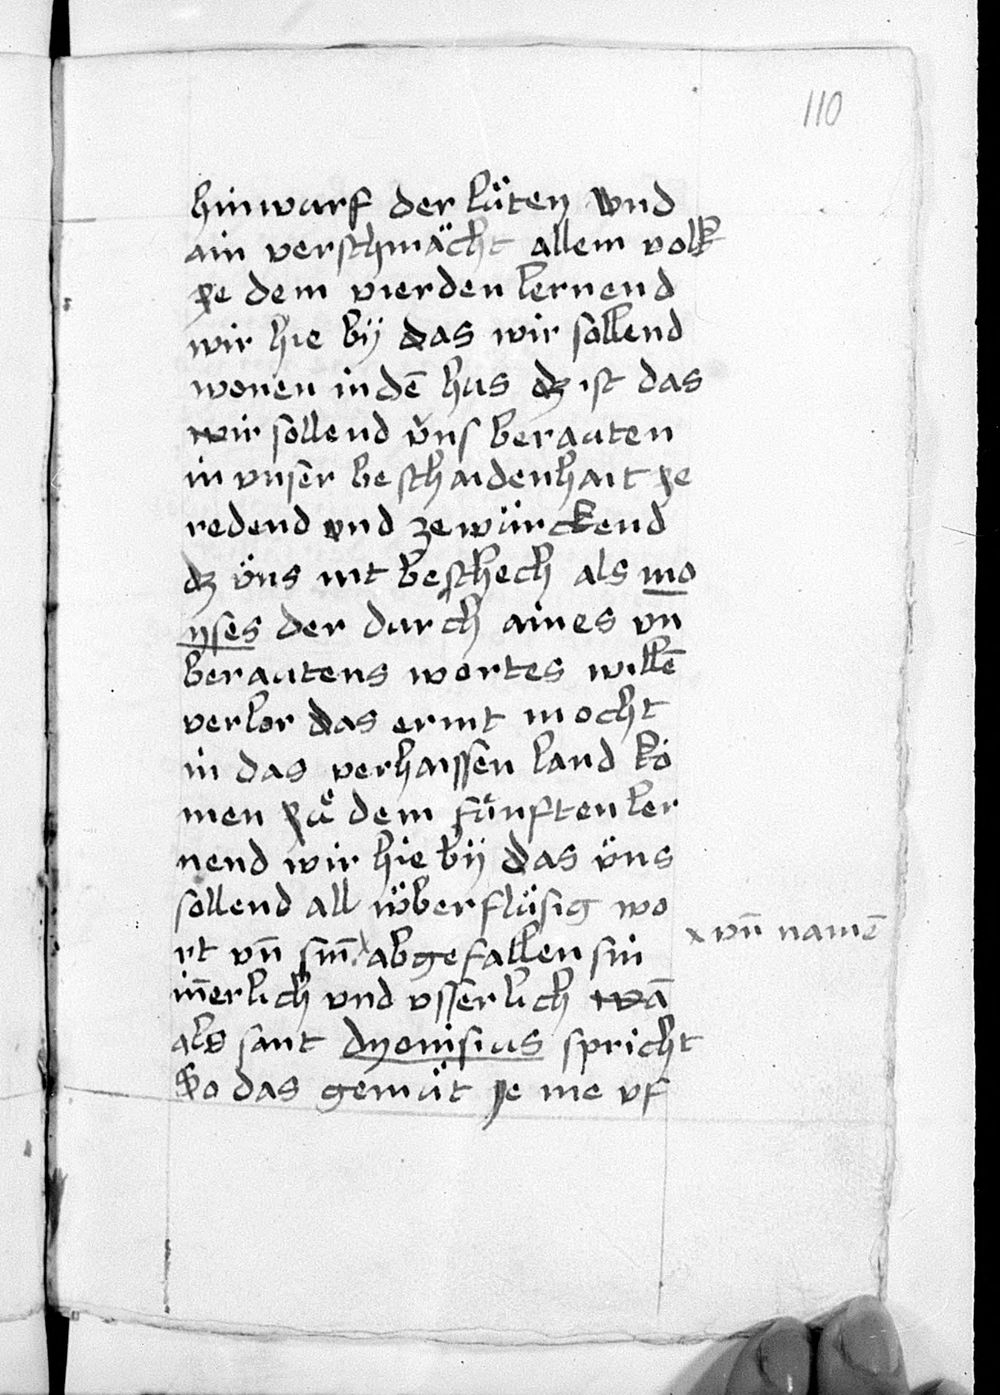 110
hinwarf der lüten vnd
ain verschmächt allem volk
ze dem vierden lernend
wir hie bÿ das wir sollend
wonen in dē hus dz ist das
wir sollend v̈ns berauten
in vnser beschaidenhait ze
redend vnd zewürckend
dz üns nit beschech als mo
yses der durch aines vn
berautens wortes willē
verlor das er nit mocht
in das verhaissen land ko
men zů dem fünften ler
nend wir hie bÿ das üns
sollend all v̈berflüsig wo
rt vn̄ sin̄ abgefallen sin
x vn̄ namē
in̄erlich vnd vsserlich wā
als sant dyonisius spricht
So das gemüt je me vf